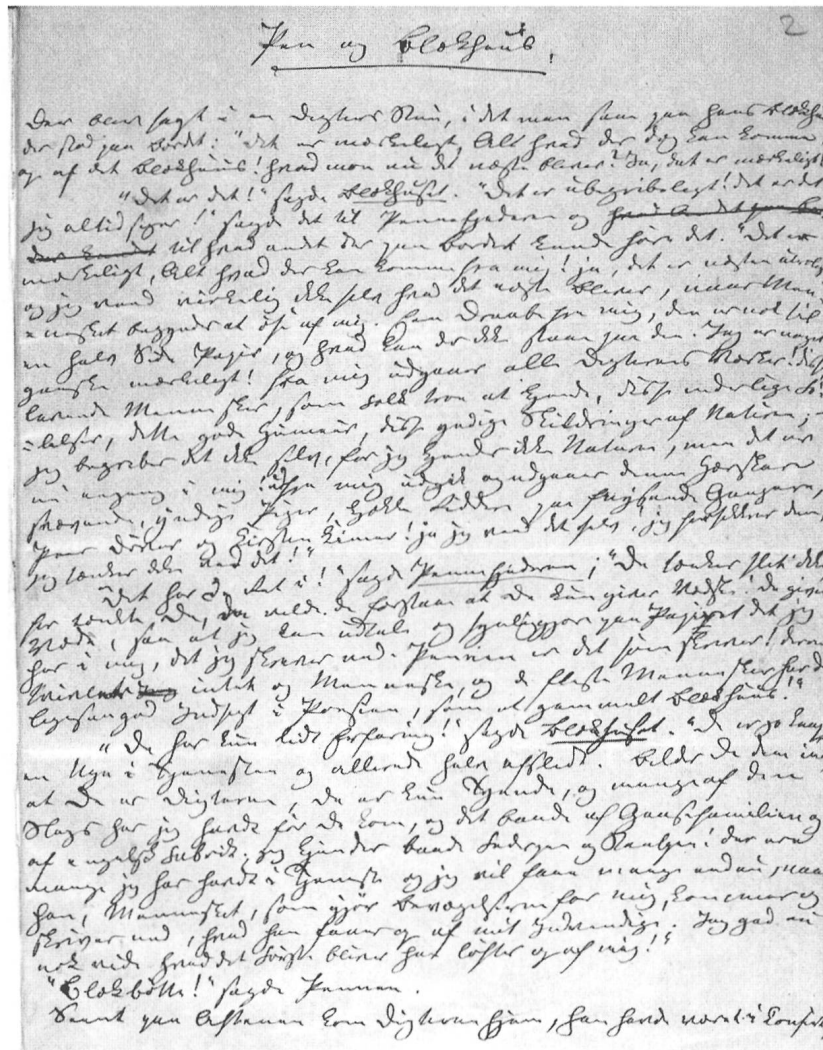 2
Pen og Blækhuus.
Der blev sagt i en Digters Stue, i det man saae paa hans Blækhu
der stod paa Bordet: "det er mærkeligt, Alt hvad der dog kan komme
op af det Blækhuus! hvad mon nu det næste bliver? Ja, det er mærkeligt
"Det er det!" sagde Blækhuset. "Det er ubegribeligt! det er det
jeg altid siger!" sagde det til Pennefjederen og
til hvad andet der paa Bordet kunde høre det. "Det er
mærkeligt, Alt hvad der kan komme fra mig! ja, det er næsten utrolig
og jeg veed virkelig ikke selv hvad det næste bliver, naar Men-
nesket begynder at øse af mig. Een Draabe fra mig, den er nok til
en halv Side Papir, og hvad kan der ikke staae paa den. Jeg er noget
ganske mærkeligt! fra mig udgaaer alle Digterens Værker! diss
levende Mennesker, som Folk troe at kjende, disse inderlige Fø-
lelser, dette gode Humeur, disse yndige Skildringer af Naturen;
jeg begriber det ikke selv, for jeg kjender ikke Naturen, men det er
nu engang i mig! fra mig udgik og udgaaer denne Hærskare
svævende, yndige Piger, kjække Riddere paa fnysende Gangere,
Peer Døver og Kirsten Kimer! ja jeg veed det selv, jeg forsikkrer dem,
jeg tænker ikke ved det!"
"Det har De Ret i!" sagde Pennefjederen; "De tænker slet ikke
for tænkte De, da vilde De forstaae at De kun giver Vædske! De give
Væde, saa at jeg kan udtale og synliggjøre paa Papiret det jeg
har i mig, det jeg skriver ned. Pennen er det som skriver! derom
tvivler intet Menneske, og de fleste Mennesker har do
ligesaa god Indsigt i Poesien, som et gammelt Blækhuus!"
"De har kun lidt Erfaring!" sagde Blækhuset. "De er jo knap
en Uge i Tjenesten og allerede halv afslidt. Bilder De dem ind
at De er Digteren, De er kun Tyende, og mange af den
Slags har jeg havt før De kom, og det baade af Gaasefamilien og
af engelsk Fabrik; jeg kjender baade Federpen og Staalpen! der ere
mange jeg har havt i Tjeneste og jeg vil faae mange endnu, naa
han, Mennesket, som gjør Bevægelserne for mig, kommer og
skriver ned, hvad han faaer op af mit Indvendige. Jeg gad nu
nok vide hvad det Første bliver han løfter op af mig!"
"Blækbøtte!" sagde Pennen.
Seent paa Aftenen kom Digteren hjem, han havde været i Consert